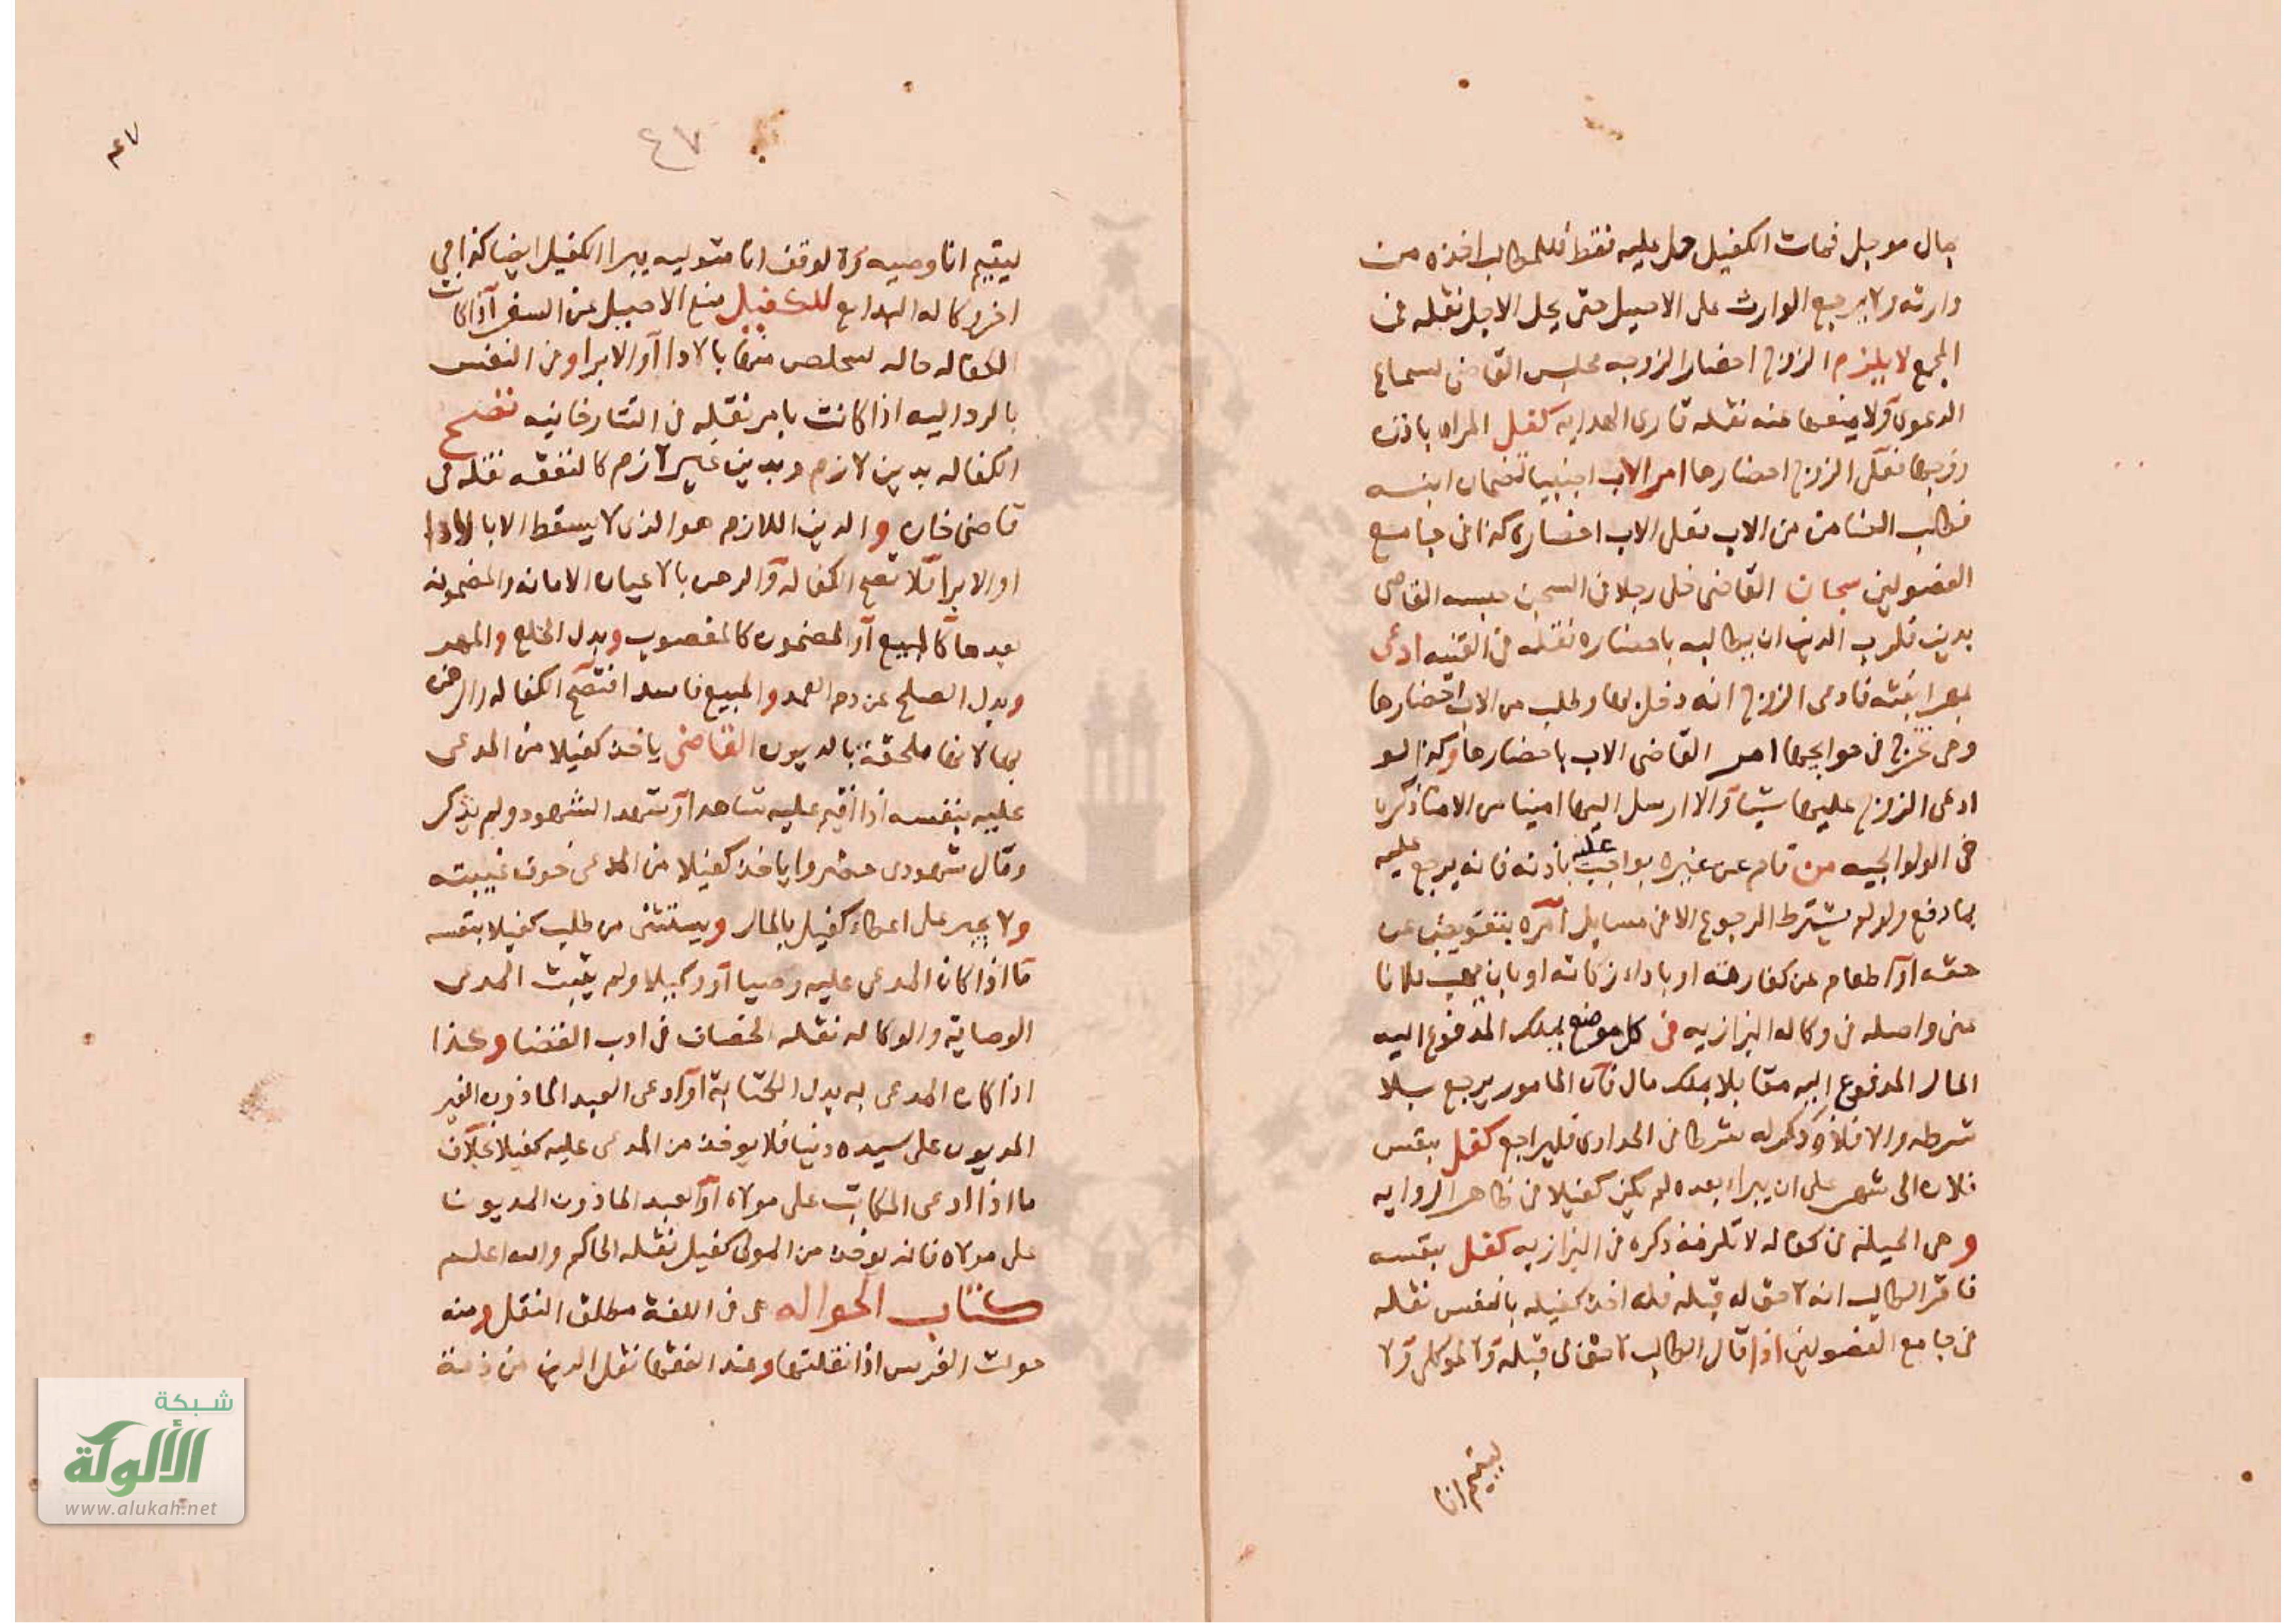 بمال موجل فمات الكفيل حل عليه فقط فللطالب اخذه من
وارثه ولا يرجع الوارث على الاصيل حتى يحل الاجل نقله في
المجمع لا يلزم الزوج احضار الزوجه مجلس القاضي لسماع
الدعوى ولا يمنعها عنه نقله قارى الهدايه كفل المراه باذن
زوجها فعلى الزوج احضارها امر الاب اجنبيا بضمان ابنه
فطلب الضامن من الاب فعلى الاب احضاره كذا في جامع
الفصولين سجان القاضي خلى رجلا من السجن حبسه القاضي
بدين فلرب الدين ان يطالبه باحضاره نقله في القنيه ادعى
مهر ابنته فادعى الزوج انه دخل بها وطلب من الاب احضارها
وهي تخرج في حوايجها امر القاضي الاب باحضارها وكذا لو
ادعى الزوج عليها شيا والا ارسل اليها امينا من الامنا ذكره
في الولوالجيه من قام عن غيره بواجب عليه باذنه فانه يرجع عليه
بما دفع ولو لم يشترط الرجوع الا في مسايل امره بتعويض عن
حقه او اطعام عن كفارته او باداء زكاته او بان يهب فلانا
عني واصله في وكاله البزازيه في كل موضع يملك المدفوع اليه
المال المدفوع اليه مقابلا بملك مال فان المامور يرجع بلا
شرط والا فلا وذكر له شرطا في الحدادي فليراجع كفل بنفس
فلان الى شهر على ان يبراء بعده لم يكن كفيلا في ظاهر الروايه
وهي الحيله في كفاله لا تلزم ذكره في البزازيه كفل بنفسه
فاقر الطالب انه لا حق له قبله فله اخذ كفيله بالنفس نقله
في جامع الفصولين اذا قال الطالب لا حق لي قبله ولا لموكلي ولا
ليتيم انا
٤٧
٤٧
ليتيم انا وصيه ولا لوقف انا متوليه يبرا الكفيل ايضا كذا في
اخر وكاله البدايع للكفيل منع الاصيل من السفر اذا كانت
الكفاله حاله ليخلصه منها بالادا او الابرا وفي النفس
بالرد اليه اذا كانت بامر نقله في التتارخانيه تصح
الكفاله بدين لازم وبدين غير لازم كالنفقه نقله في
قاضي خان والدين اللازم هو الذي لا يسقط الا بالادا
او الابرا لا تصح الكفاله والرهن بالاعيان الامانه والمضمونه
بغيرها كالمبيع او المضمون كالمغصوب وبدل الخلع والمهر
وبدل الصلح عن دم العمد والمبيع فاسدا فتصح الكفاله والرهن
بها لانها ملحقة بالديون القاضي ياخذ كفيلا من المدعى
عليه بنفسه اذا اقيم عليه شاهد او شهد الشهود ولم يذكر
وقال شهودي حضروا ياخذ كفيلا من المدعى خوف غيبته
ولا يجبر على اعطاء كفيل بالمال ويستثنى من طلب كفيلا بنفسه
ما اذا كان المدعى عليه وصيا او وكيلا ولم يثبت المدعى
الوصاية والوكاله نقله الخصاف في ادب القضا وكذا
اذا كان المدعى به بدل الكتابة او ادعى العبد الماذون الغير
المديون على سيده دينا فلا يوخذ من المدعى عليه كفيلا بخلاف
ما اذا ادعى المكاتب على مولاه او العبد الماذون المديون
على مولاه فانه يوخذ من المولى كفيل نقله الحاكم والله اعلم
كتاب الحواله هي في اللغة مطلق النقل ومنه
حولت الغرس اذا نقلتها وعند الفقها نقل الدين من ذمة
شبكة
الألوكة
www.alukah.net